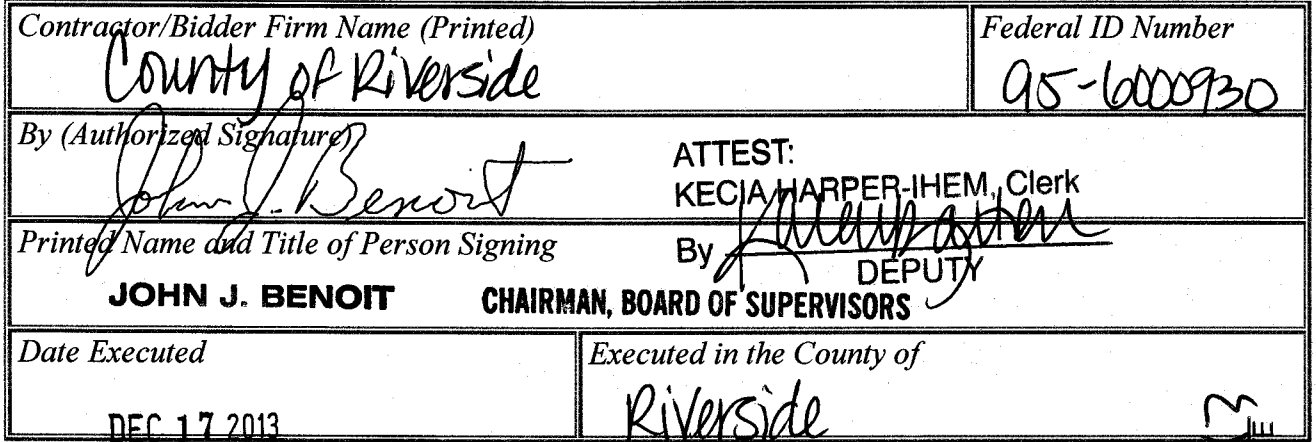 Contractor/Bidder Firm Name (Printed)
County of Riverside
Federal ID Number
95-6000930
By (Authorized Signature)
John J. Benoit
ATTEST:
KECIA HARPER-IHEM, Clerk
By
DEPUTY
Printed Name and Title of Person Signing
JOHN J. BENOIT CHAIRMAN, BOARD OF SUPERVISORS
Date Executed
DEC 17 2013
Executed in the County of
Riverside